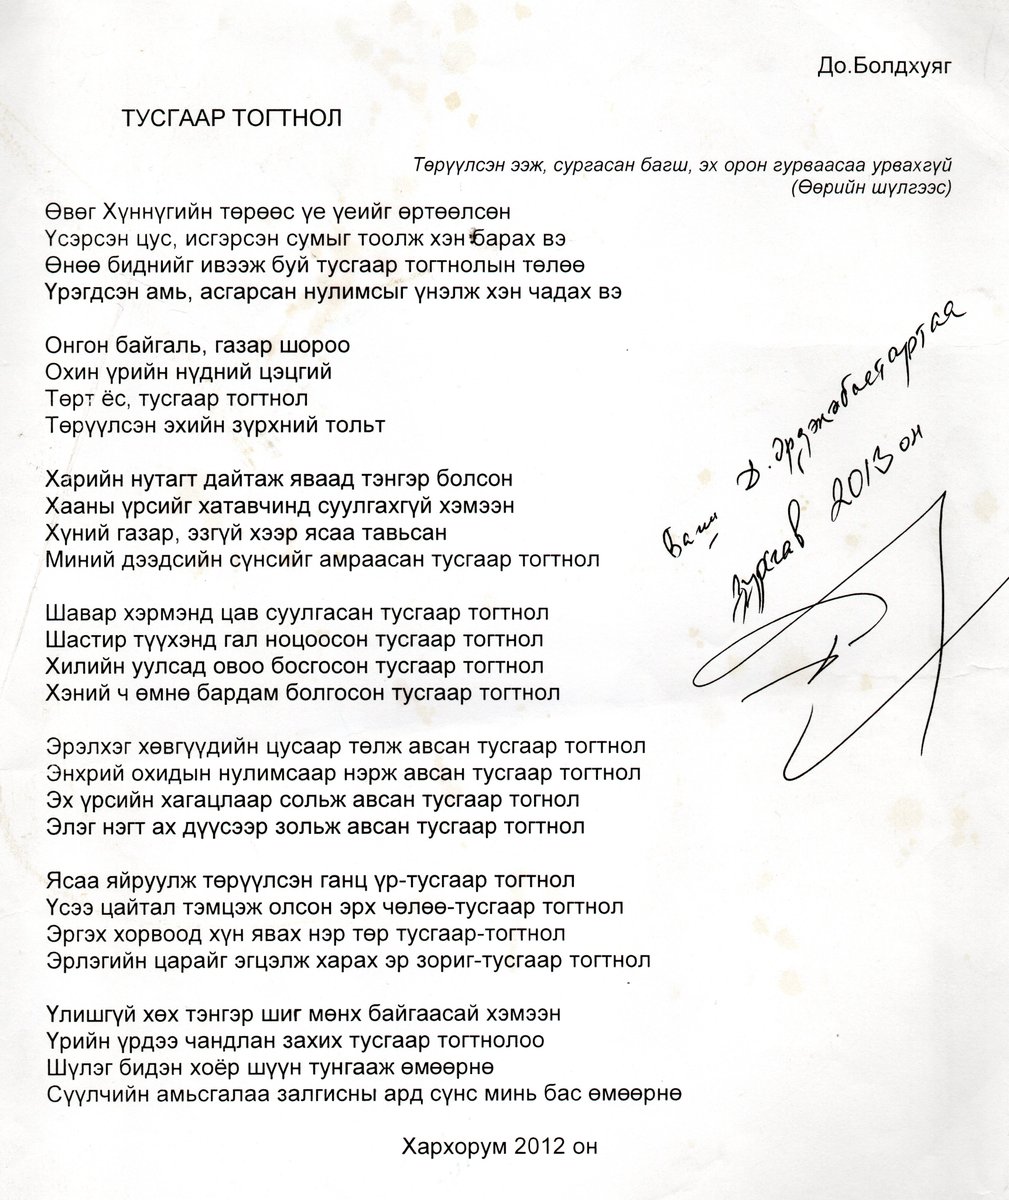 До.Болдхуяг
ТУСГААР ТОГТНОЛ
Төрүүлсэн ээж, сургасан багш, эх орон гурваасаа урвахгүй
(Өөрийн шүлгээс)
Өвөг Хүннүгийн төрөөс үе үеийг өртөөлсөн
Үсэрсэн цус, исгэрсэн сумыг тоолж хэн барах вэ
Өнөө биднийг ивээж буй тусгаар тогтнолын төлөө
Үрэгдсэн амь, асгарсан нулимсыг үнэлж хэн чадах вэ
Онгон байгаль, газар шороо
Охин үрийн нүдний цэцгий
Төрт ёс, тусгаар тогтнол
Төрүүлсэн эхийн зүрхний тольт
Харийн нутагт дайтаж яваад тэнгэр болсон
Хааны үрсийг хатавчинд суулгахгүй хэмээн
Хүний газар, эзгүй хээр ясаа тавьсан
Миний дээдсийн сүнсийг амраасан тусгаар тогтнол
Шавар хэрмэнд цав суулгасан тусгаар тогтнол
Шастир түүхэнд гал ноцоосон тусгаар тогтнол
Хилийн уулсад овоо босгосон тусгаар тогтнол
Хэний ч өмнө бардам болгосон тусгаар тогтнол
Эрэлхэг хөвгүүдийн цусаар төлж авсан тусгаар тогтнол
Энхрий охидын нулимсаар нэрж авсан тусгаар тогтнол
Эх үрсийн хагацлаар сольж авсан тусгаар тогнол
Элэг нэгт ах дүүсээр зольж авсан тусгаар тогтнол
Ясаа яйруулж төрүүлсэн ганц үр-тусгаар тогтнол
Үсээ цайтал тэмцэж олсон эрх чөлөө-тусгаар тогтнол
Эргэх хорвоод хүн явах нэр төр тусгаар-тогтнол
Эрлэгийн царайг эгцэлж харах эр зориг-тусгаар тогтнол
Үлишгүй хөх тэнгэр шиг мөнх байгаасай хэмээн
Үрийн үрдээ чандлан захих тусгаар тогтнолоо
Шүлэг бидэн хоёр шүүн тунгааж өмөөрнө
Сүүлчийн амьсгалаа залгисны ард сүнс минь бас өмөөрнө
Хархорум 2012 он
Багш Д.
2013 он